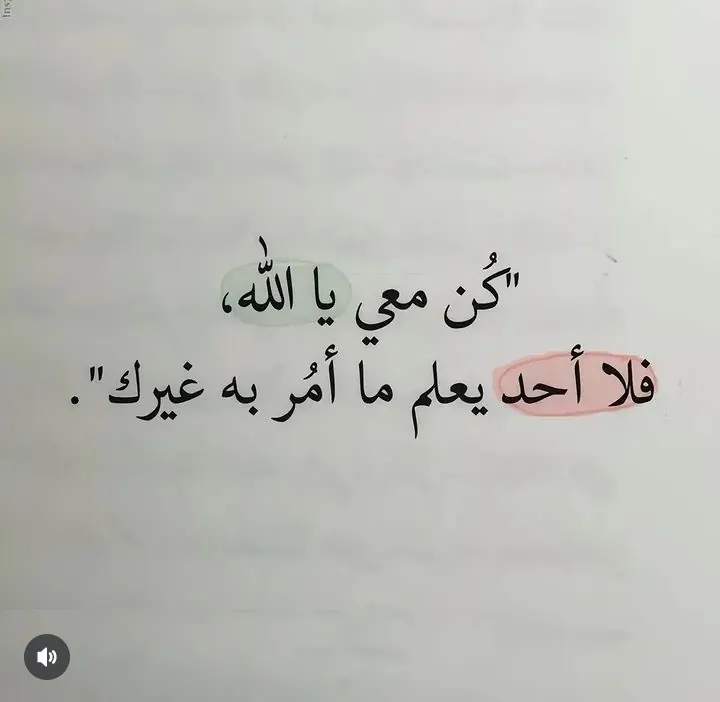 "كُن معي يا الله،
فلا أحد يعلم ما أمُر به غيرك".